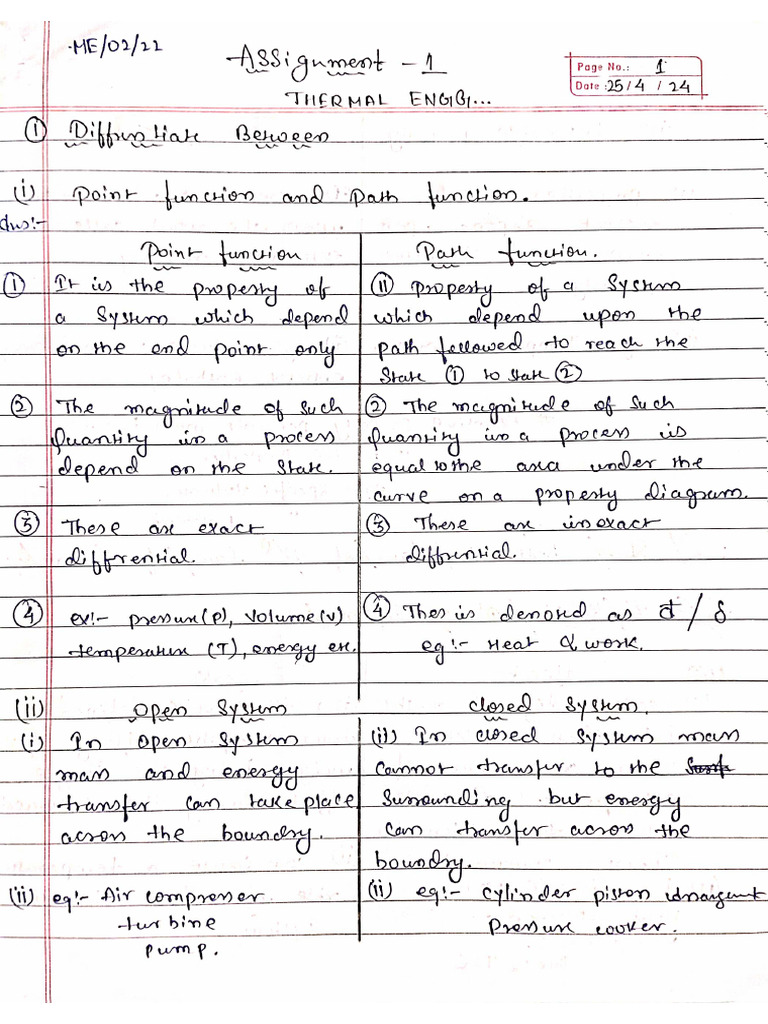 ME/02/22
Assignment - 1
Page No.: 1
Date : 25/4/24
THERMAL ENGG...
① Diffrentiate Between
(i) Point function and Path function.
Ans:-
Point function
① It is the property of
a system which depend
on the end point only
② The magnitude of such
quantity in a process
depend on the state.
③ These are exact
diffrential.
④ ex:- pressure(p), volume(v)
temperature (T), energy etc.
Path function.
(ii) property of a system
which depend upon the
path followed to reach the
state ① to state ②
② The magnitude of such
quantity in a process is
equal to the area under the
curve on a property diagram.
③ These are inexact
diffrential.
④ Thes is denoted as đ / δ
eg:- Heat & work.
(ii) Open System
(i) In open system
mass and energy
transfer can take place
across the boundry.
(ii) eg:- Air compresser
turbine
pump.
closed system.
(ii) In closed system mass
cannot transfer to the
surrounding but energy
can transfer across the
boundry.
(ii) eg:- cylinder piston
pressure cooker.